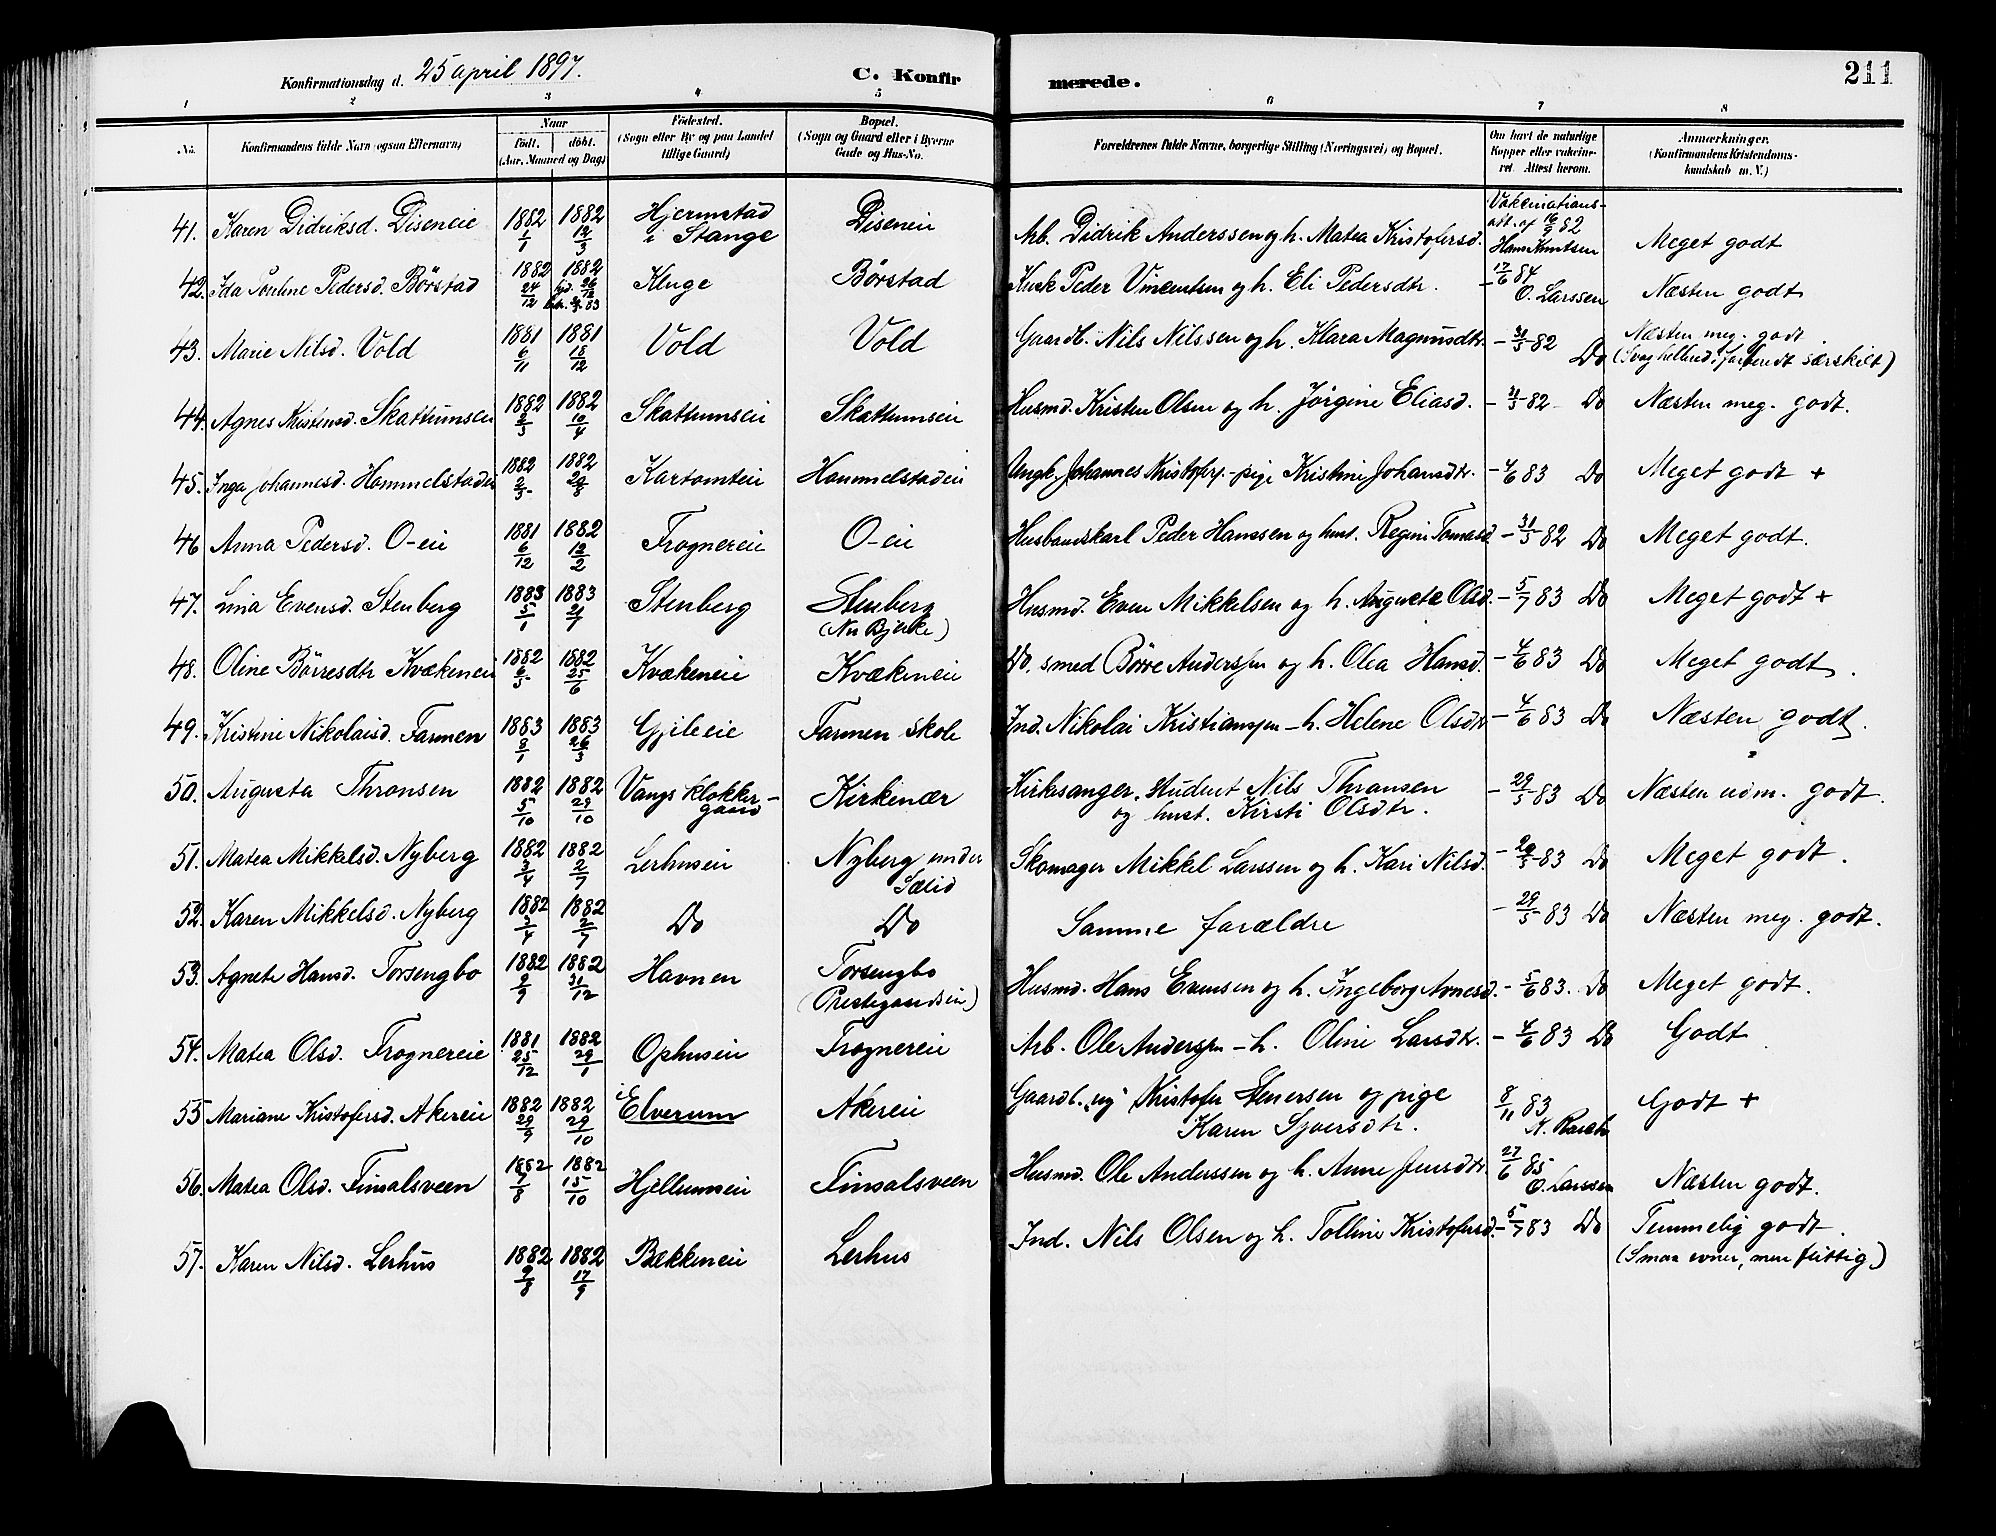 Konfirmationsdag d. 25 april 1897. C. Konfirmerede. 211
1 2 3 4 5 6 7 8
No. Konfirmandens fulde Navn (ogsaa Efternavn) Naar født. døbt. (Aar, Maaned og Dag) Fødested. (Sogn eller By og paa Landet tillige Gaard) Bopæl. (Sogn og Gaard eller i Byerne Gade og Hus-No. Forældrenes fulde Navne, borgerlige Stilling (Næringsvei) og Bopæl. Om havt de naturlige Kopper eller vakcineret. Attest herom. Anmærkninger. (Konfirmandens Kristendomskundskab m. V.)
41. Karen Didriksd. Diseneie 1882 1/1 1882 12/3 Hjermstad i Stange Diseneie Arb. Didrik Anderssen og h. Matea Kristofersd. Vakcinations- att. af 16/9 82 Hans Knutsen Meget godt
42. Ida Pouline Pedersd. Børstad 1882 24/12 1882 26/12 83 Kluge Børstad Kusk Peder Vincentsen og h. Eli Pedersdtr. - 17/6 84 O. Larssen Næsten godt
43. Marie Nilsd. Vold 1881 6/11 1881 18/12 Vold Vold Gaardb. Nils Nilssen og h. Klara Magnusdtr. - 31/5 82 Do Næsten meg. godt (Svag helbred, forberedt særskilt)
44. Agnes Kristensd. Skattumseie 1882 2/3 1882 10/4 Skattumseie Skattumseie Husmd. Kristen Olsen og h. Jørgine Eliasd. - 31/5 82 Do Næsten meg. godt.
45. Inga Johannesd. Hommelstadeie 1882 2/5 1882 20/8 Kartomteie Hommelstadeie Ungk. Johannes Kristofers. - pige Kristine Johansdtr. - 4/6 83 Do Meget godt +
46 Anna Pedersd. O-eie 1881 6/12 1882 12/2 Frognereie O-eie Husbondskarl Peder Hanssen og hust. Regine Tomasd - 31/5 82 Do Meget godt.
47. Lina Evensd. Stenberg 1883 5/1 1883 21/7 Stenberg Stenberg (Nu Bjerke) Husmd. Even Mikkelsen og h. Auguste Olsd. - 5/7 83 Do Meget godt +
48. Oline Børresdtr Kvækeneie 1882 2/5 1882 25/6 Kvækeneie Kvækeneie Do. smed Børre Anderssen og h. Olea Hansd. - 4/6 83 Do Meget godt.
49. Kristine Nikolaisd. Farmen 1883 8/1 1883 26/3 Gjileeie Farmen skole Ind. Nikolai Kristianssen - h. Helene Olsdtr - 4/6 83 Do Næsten godt.
50. Augusta Thronsen 1882 5/10 1882 29/10 Vangs klokkergaard Kirkenær Kirkesanger, Student Nils Thronsen og hust. Kirsti Olsdtr. - 29/5 83 Do Næsten udm. godt.
51. Matea Mikkelsd. Nyberg 1882 3/4 1882 2/7 Lerhuseie Nyberg under Sælid Skomager Mikkel Larssen og h. Kari Nilsd. - 29/5 83 Do Meget godt.
52. Karen Mikkelsd. Nyberg 1882 3/4 1882 2/7 Do Do Samme forældre - 29/5 83 Do Næsten meg. godt.
53. Agnete Hansd. Torsengbo 1882 2/9 1882 31/12 Havnen Torsengbo (Prestegaardseie) Husmd. Hans Evensen og h. Ingeborg Arnesd. - 5/6 83. Do Meget godt.
54. Matea Olsd. Frognereie 1881 25/12 1882 29/1 Ophuseie Frognereie Arb. Ole Anderssen - h. Oline Larsdtr. - 4/6 83 Do Godt
55 Mariane Kristofersd. Akereie 1882 29/9 1882 29/10 i Elverum Akereie Gaardb. ug Kristofer Stenersen og pige Karen Syversdtr. 8/11 83 Godt +
56. Matea Olsd. Finsalsveen 1882 7/8 1882 15/10 Hjellumseie Finsalsveen Husmd. Ole Anderssen og h. Anne Jensdtr. 27/6 85 O. Larssen Næsten godt.
57. Karen Nilsd. Lerhus 1882 9/8 1882 17/9 Bækkeneie Lerhus Ind. Nils Olsen og h. Tolline Kristofersd. - 5/7 83 Do Temmelig godt. (Smaa evner, men flittig)